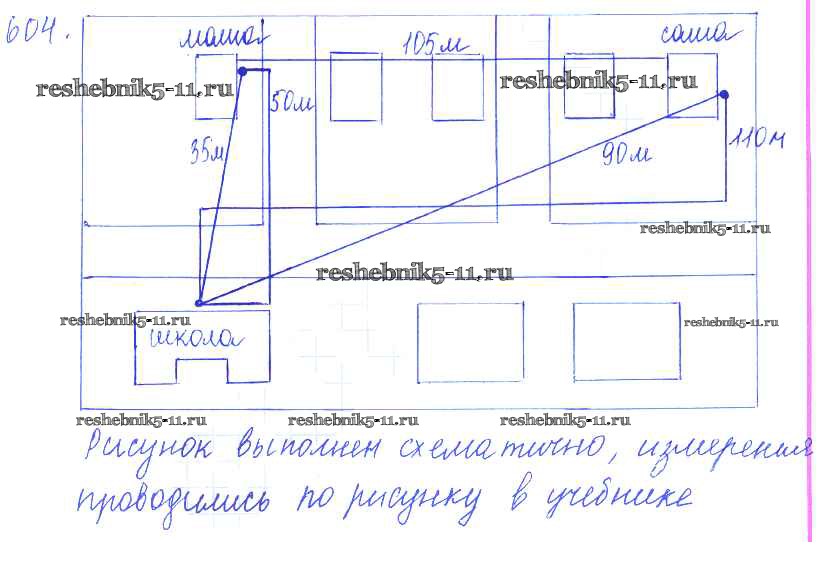 604.
маша 105м саша
reshebnik5-11.ru reshebnik5-11.ru
50м
35м 90м 110м
reshebnik5-11.ru
reshebnik5-11.ru
reshebnik5-11.ru reshebnik5-11.ru
школа
reshebnik5-11.ru reshebnik5-11.ru reshebnik5-11.ru
Рисунок выполнен схематично, измерения
проводились по рисунку в учебнике